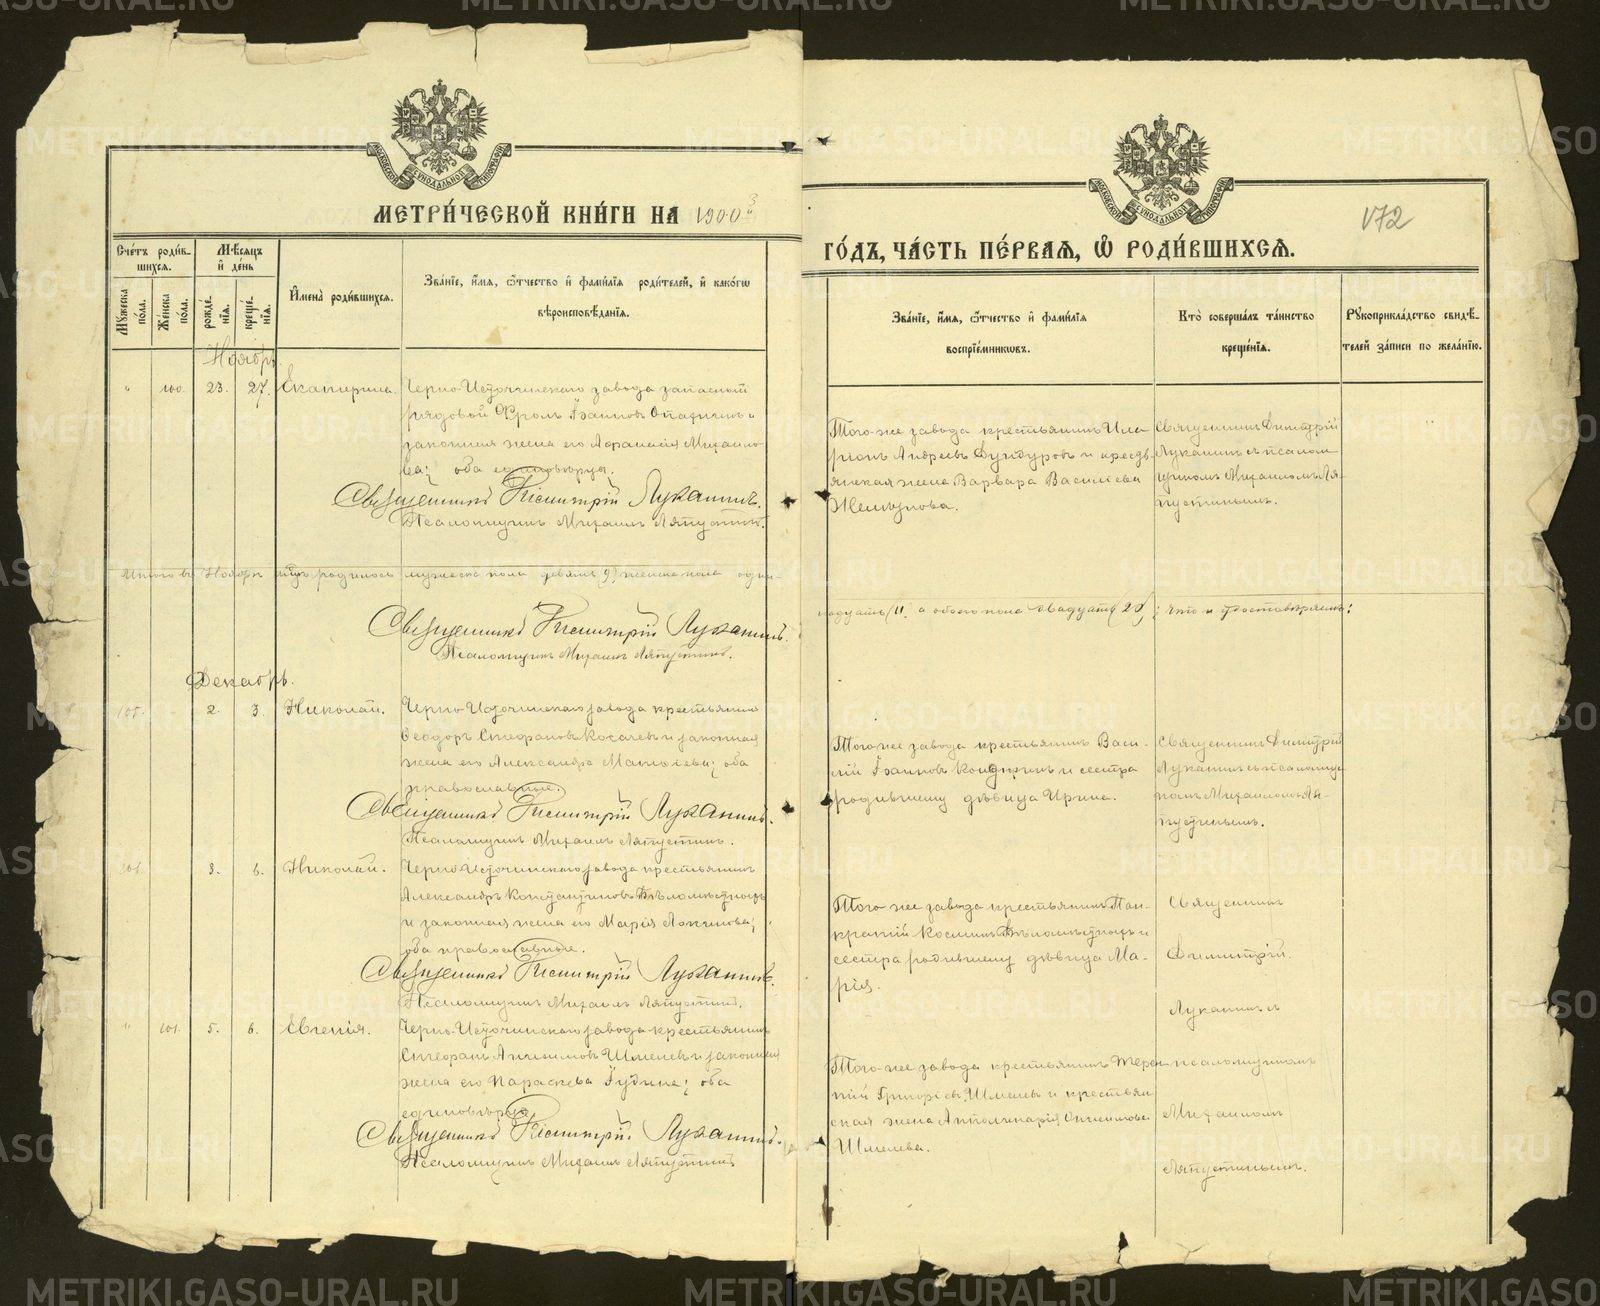 METRIKI.GASO-URAL.RU
МЕТРИ́ЧЕСКОЙ КНИ́ГИ НА 1903 й
ГО́ДЪ, ЧА́СТЬ ПЕ́РВАЯ, Ѽ РОДИ́ВШИХСЯ.
172
МОСКОВСКОЙ СѴНОДАЛЬНОЙ ТИПОГРАФІИ
Сче́тъ роди́в-
шихся.
Мѣ́сяцъ
и́ де́нь
Мꙋ́жеска
по́ла.
Же́нска
по́ла.
рожде́-
нія.
креще́-
нія.
И҆мена̀ роди́вшихся.
Зва́ніе, и҆́мя, ѻ҆́тчество и҆ фами́лія роди́телей, и҆ како́гѡ
вѣроисповѣ́данія.
Зва́ніе, и҆́мя, ѻ҆́тчество и҆ фами́лія
воспріе́мникѡвъ.
Кто̀ соверша́лъ та́инство
креще́нія.
Рꙋкоприкла́дство свидѣ́-
телей за́писи по жела́нію.
Ноябрь
" 100. 23. 27. Екатерина.
Черно-Источинскаго завода запасный
рядовой Фролъ Іоанновъ и
законная жена его Афанасія Михайло-
ва; оба единовѣрцы.
Священникъ Димитрій Луканинъ.
Псаломщикъ Михаилъ Ляпустинъ.
Того-же завода крестьянинъ Ила-
ріонъ Андреевъ и кресть-
янская жена Варвара Васильева
Священникъ Димитрій
Луканинъ съ псалом-
щикомъ Михаиломъ Ля-
пустинымъ.
Итого въ Ноябрѣ мцѣ родилось мужеска пола девять (9) женска пола один-
надцать (11) а обоего пола двадцать (20); что и удостовѣряемъ:
Священникъ Димитрій Луканинъ.
Псаломщикъ Михаилъ Ляпустинъ.
Декабрь.
2. 3. Николай.
Черно-Источинскаго завода крестьянинъ
Ѳеодоръ Стефановъ Косачевъ и законная
жена его Александра; оба
православные.
Священникъ Димитрій Луканинъ.
Псаломщикъ Михаилъ Ляпустинъ.
Того-же завода крестьянинъ Васи-
лій Іоанновъ и сестра
родившему дѣвица Ирина.
Священникъ Димитрій
Луканинъ съ псаломщи-
комъ Михаиломъ Ля-
пустинымъ.
3. 6. Николай.
Черно-Источинскаго завода крестьянинъ
Александръ Константиновъ
и законная жена его Марія Логинова;
оба православные.
Священникъ Димитрій Луканинъ.
Псаломщикъ Михаилъ Ляпустинъ.
Того же завода крестьянинъ Пан-
кратій Косминъ и
сестра родившему дѣвица Ма-
рія.
Священникъ
Димитрій
Луканинъ съ
" 101. 5. 6. Евгенія.
Черно-Источинскаго завода крестьянинъ
Стефанъ Анисимовъ Шмелевъ и законная
жена его Параскева; оба
единовѣрцы.
Священникъ Димитрій Луканинъ.
Псаломщикъ Михаилъ Ляпустинъ
Того-же завода крестьянинъ Терен-
тій Григорьевъ Шмелевъ и крестьян-
ская жена Апполинарія
Шмелева.
псаломщикомъ
Михаиломъ
Ляпустинымъ.